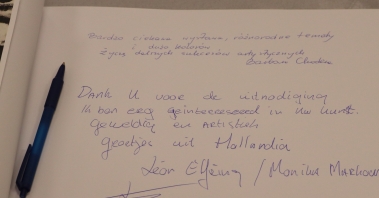 Bardzo ciekawa wystawa, różnorodne tematy
i dużo kolorów
Życzę dalszych sukcesów artystycznych
Barbara
Dank U voor de uitnodiging
Ik ben erg geïnteresseerd in Uw kunst.
Geweldig en Artistiek
Groetjes uit Hollandia
Léon / Monika